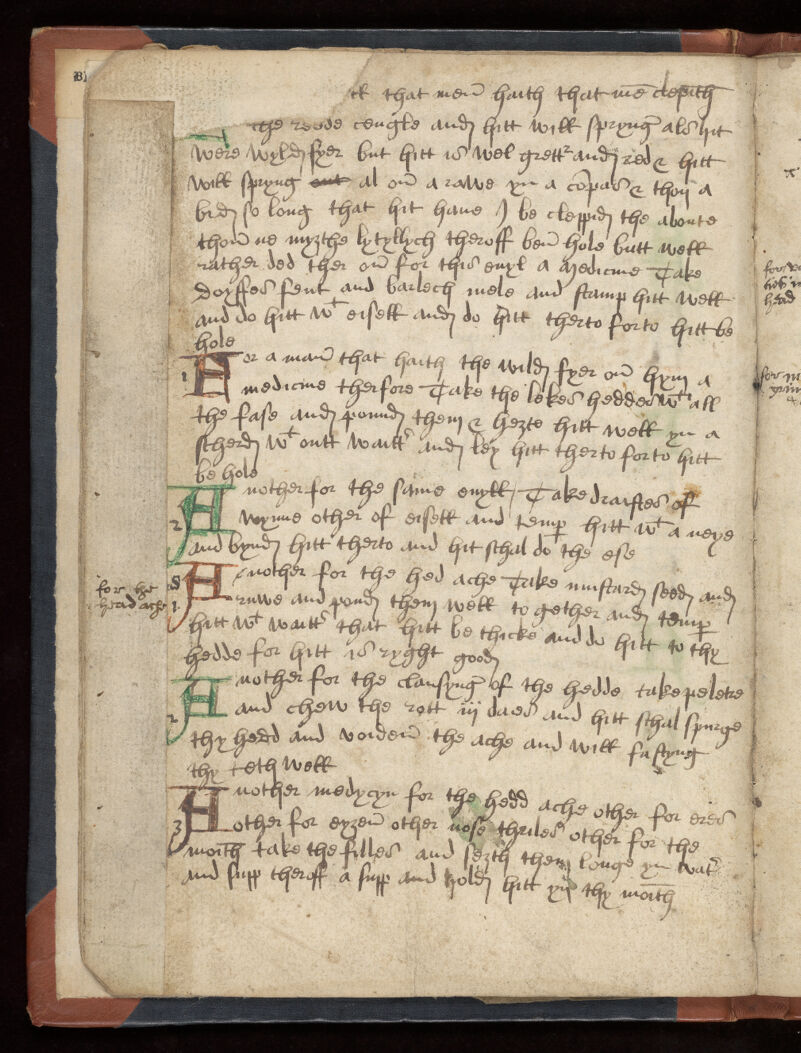 that men haith that me clepith
the reede cengle and hitt will spryng als hit
were wyld fyer but hitt is wel grettr and rede & hitt
will spryng out al on a rawe yn a compas & thow a
bid so long that hit haue I be cleppid the aboute
thou ne myzthe lytyllych theroff ben hole butt well
rather ded ther on for this euyl a medicine Take
Doyffes fent and barlech mele and stamp hitt well
and do hitt wt eisell and do hitt therto forto hitt be
hole
1 For a man that haith the wild fyer on hym a
medicine therfore Take the lekes heddes wt all
the fase and pound them & hezte hitt well yn a
scherd wt outt watter and ley hitt therto forto hitt
be hole
2 Another for the same euyll Take draiftes of
wynne other of eisell and temp hitt wt a neye
and bynd hitt therto and hit schal do the ese
for the
head ache
1 Another for the hed ache Take mustard seed and
ruwe and pound them well to gether and temp
hitt wt watter that hitt be thicke and do hitt to thy
hedde for hitt is ryght good
2 Another for the clansyng of the hedde take peletre
and chew the rott iij daies and hitt schal spurge
thy hedd and voiden the ache and will fastyng
thy teth well
3 Another medycyn for the hedd ache other for eres
other for eyzen other nose thriles other for the
moith take the filles and sezth them longe yn watr
and supp theroff a supp and hold hitt yn thy moith
head